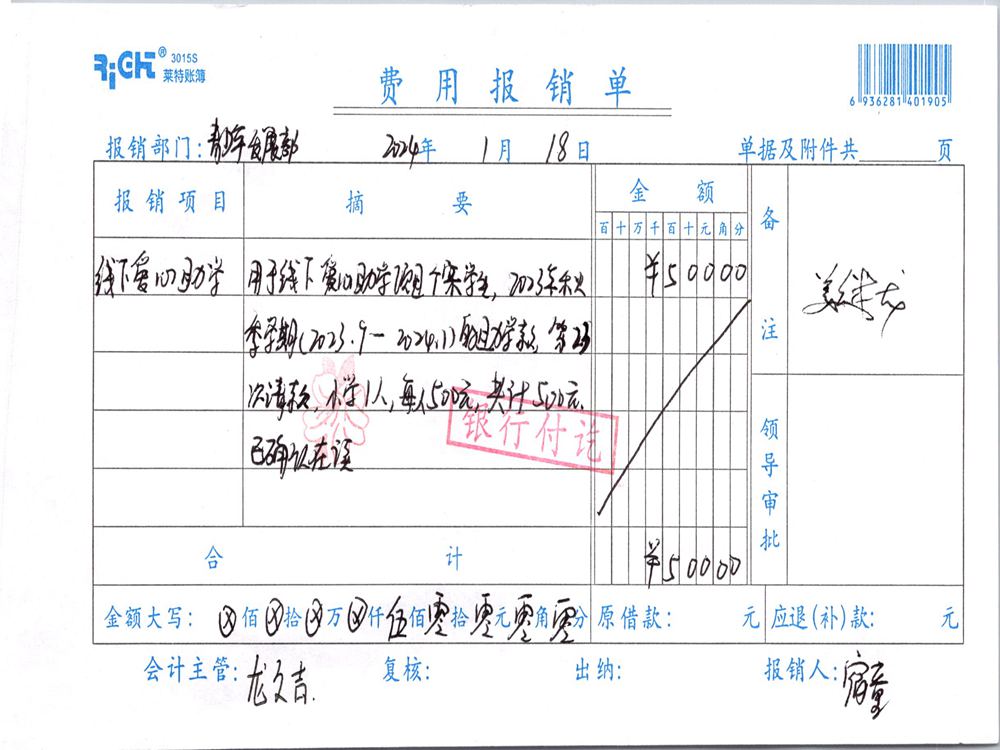 RiGHT® 3015S
莱特账簿
费用报销单
6 936281 401905
报销部门：青少年发展部 2024年 1月 18日 单据及附件共 页
报销项目 摘要 金额 备注
百十万千百十元角分
线下爱心助学 用于线下爱心助学项目个案学生，2023年秋
¥50000
季学期(2023.9—2024.1)助学款，第23
次请款，小学1人，每人500元，共计500元.
银行付讫
已确认在读
领导审批
合计 ¥50000
金额大写：ⓧ佰ⓧ拾ⓧ万ⓧ仟伍佰零拾零元零角零分 原借款： 元 应退(补)款： 元
会计主管：龙文吉 复核： 出纳： 报销人：